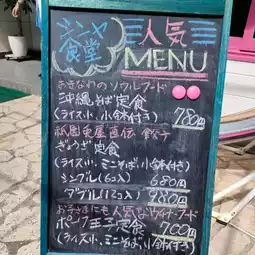 シンヤ食堂
人気
MENU
おきなわのソウルフード
沖縄そば定食
(ライス小、小鉢付き) 780円
祇園泉屋直伝 餃子
ぎょうざ定食
(ライス小、ミニそば、小鉢付き)
シングル(6コ入) 680円
ダブル(12コ入) 980円
お子さまにも人気
ポーク玉子定食 700円
(ライス小、ミニそば、小鉢付き)